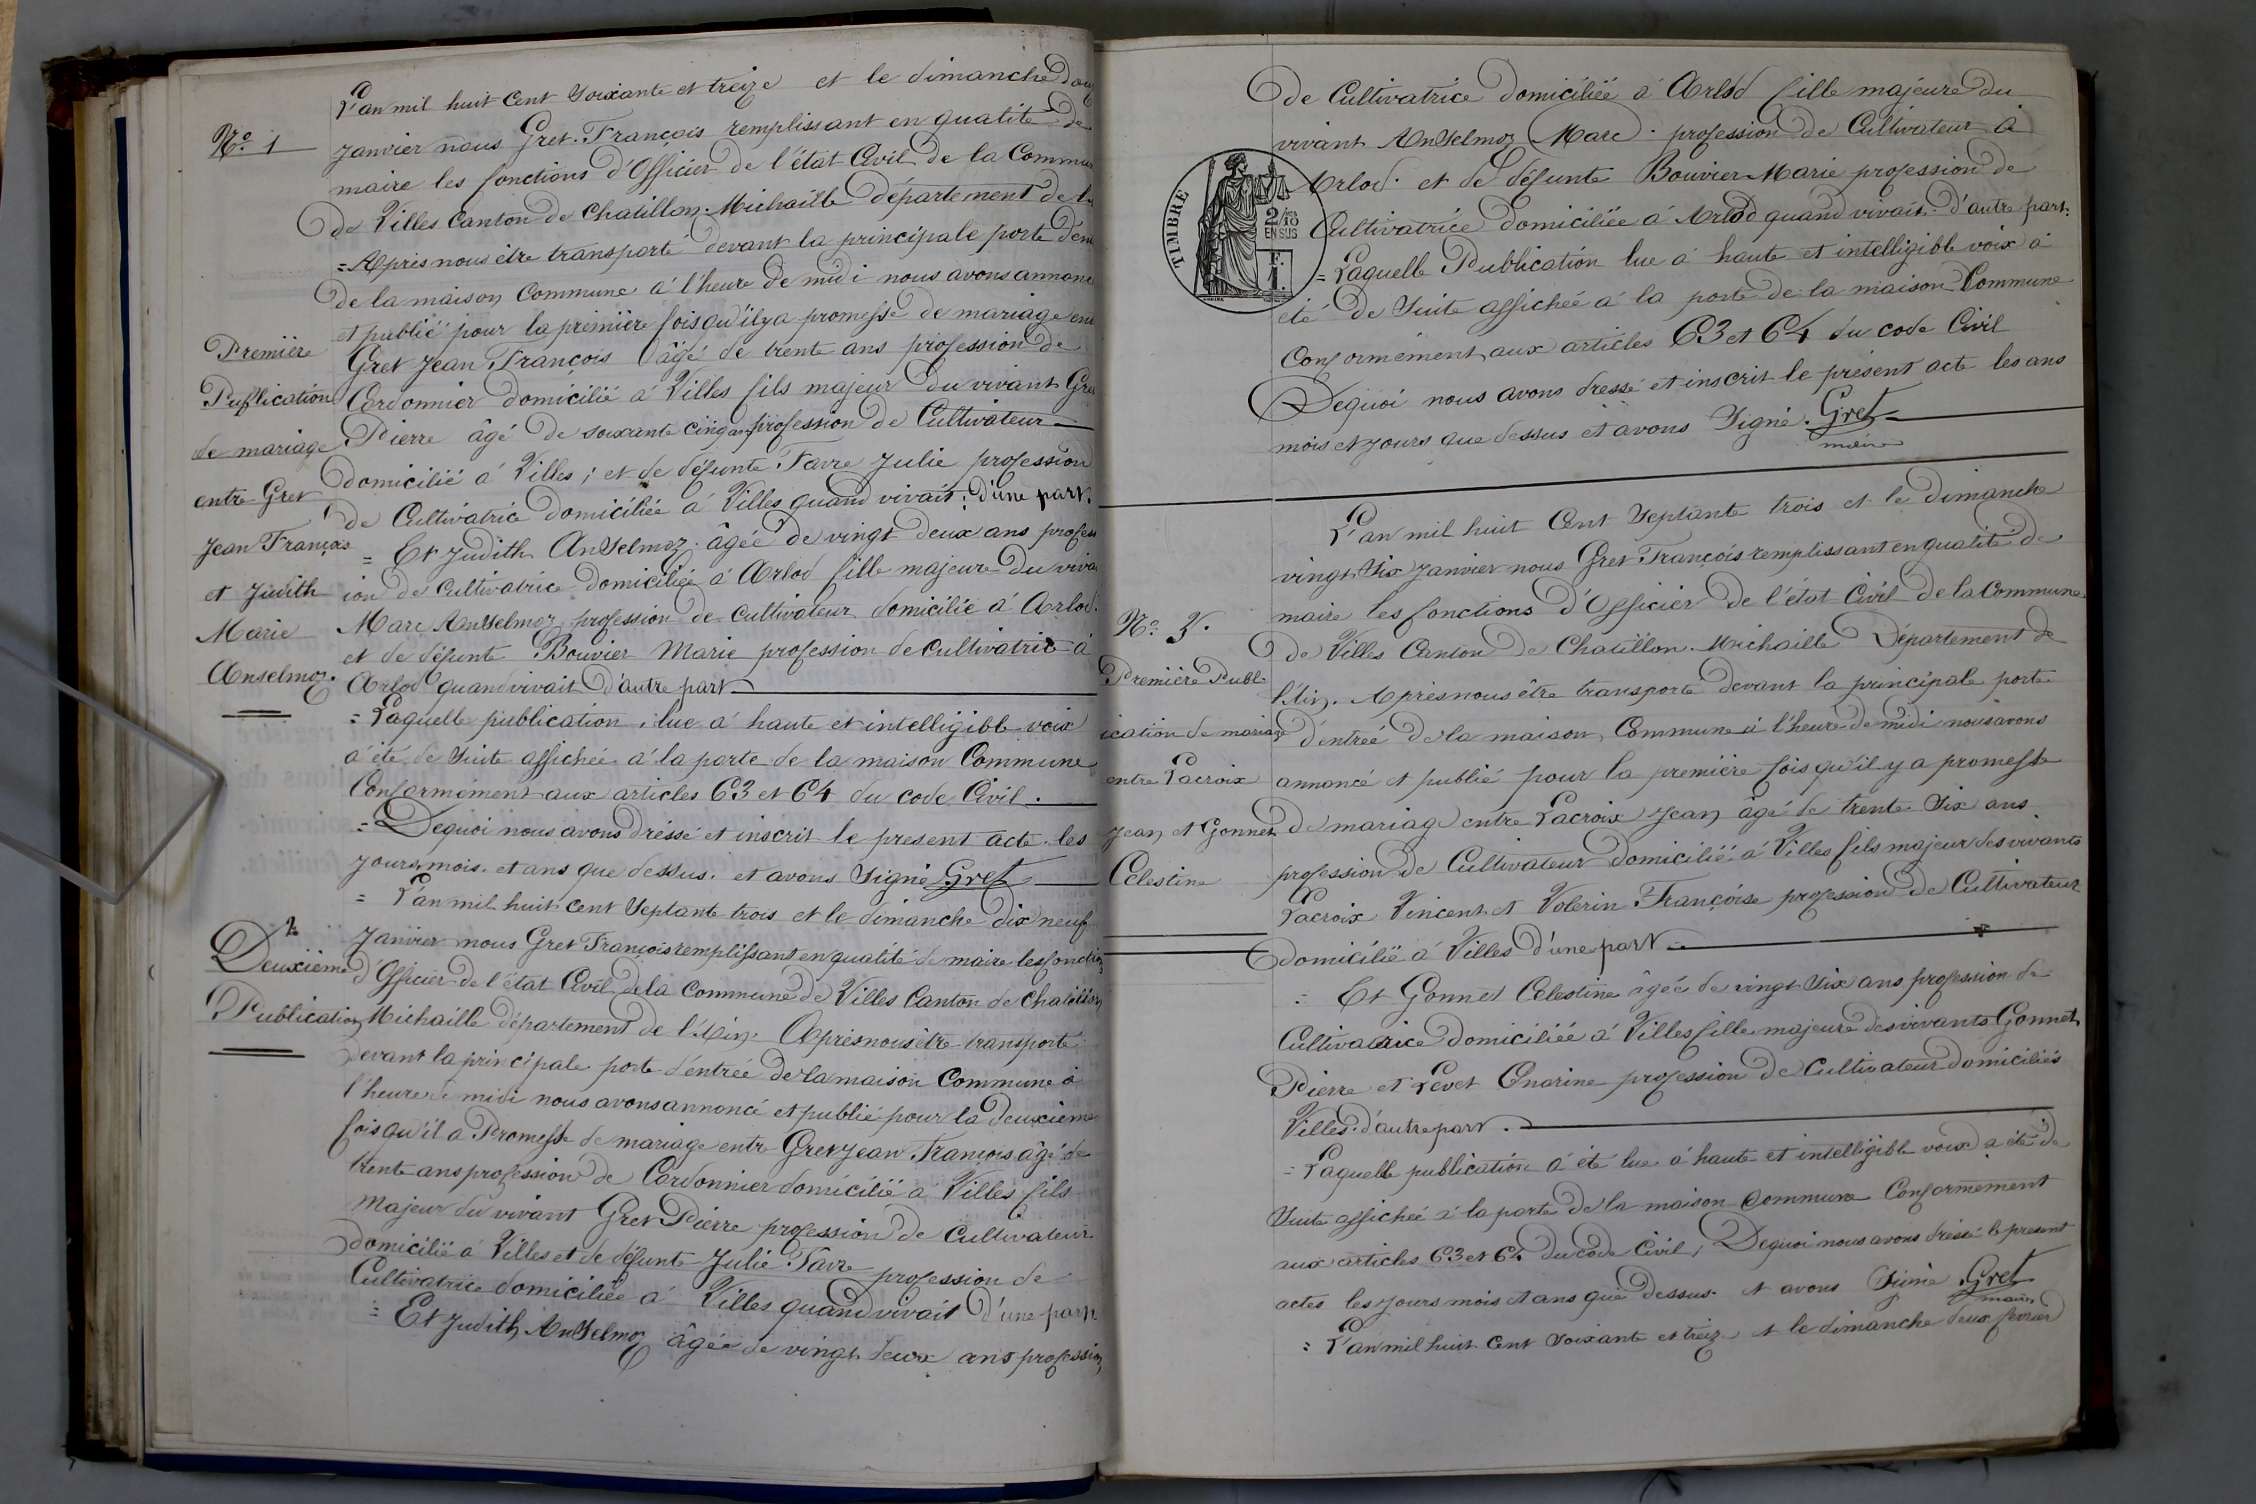 L'an mil huit Cent soixante et treize et le dimanche
janvier nous Gret François remplissant en qualité de
N° 1
maire les fonctions d'Officier de l'état Civil de la Commu
de Villes Canton de Chatillon-Michaille département de l
= Après nous être transporté devant la principale porte d'en
de la maison Commune à l'heure de midi nous avons annonc
et publié pour la première fois qu'il y a promesse de mariage en
Première
Gret Jean François âgé de trente ans profession de
Publication
Cordonnier domicilié à Villes fils majeur du vivant Gre
de mariage
Pierre âgé de soixante cinq ans profession de Cultivateur
domicilié à Villes ; et de défunte Favre Julie profession
entre Gret
de Cultivatrice domiciliée à Villes quand vivait ; d'une part.
Jean François
= Et Judith Anselmoz âgée de vingt deux ans profess
et Judith
ion de cultivatrice domiciliée à Arlod fille majeure du viva
Marie
Marc Anselmoz profession de cultivateur domicilié à Arlod.
et de défunte Bouvier Marie profession de cultivatrice à
Anselmoz.
Arlod quand vivait d'autre part
= Laquelle publication, lue à haute et intelligible voix
à été de suite affichée à la porte de la maison Commune
Conformément aux articles 63 et 64 du code Civil.
= Dequoi nous avons dressé et inscrit le present acte les
jours, mois, et ans que dessus. et avons signé Gret
= L'an mil huit cent septante trois et le dimanche dix neuf
2
janvier nous Gret François remplissant en qualité de maire les fonction
Deuxième
d'Officier de l'état Civil de la Commune de Villes Canton de Chatillon
Publication
Michaille département de l'Ain. Après nous être transporté
devant la principale porte d'entrée de la maison Commune à
l'heure de midi nous avons annoncé et publié pour la deuxième
fois qu'il a Promesse de mariage entre Gret Jean François âgé de
trente ans profession de Cordonnier domicilié à Villes fils
majeur du vivant Gret Pierre profession de Cultivateur
domicilié à Villes et de défunte Julie Favre profession de
Cultivatrice domiciliée à Villes quand vivait d'une part
= Et Judith Anselmoz âgée de vingt deux ans profession
de Cultivatrice domiciliée à Arlod fille majeure du
vivant Anselmoz Marc. profession de Cultivateur à
Arlod. et de défunte Bouvier Marie profession de
Cultivatrice domiciliée à Arlod quand vivait. d'autre part.
TIMBRE
2/10 EN SUS
F.
1.
= Laquelle Publication lue à haute et intelligible voix à
été de suite affichée à la porte de la maison Commune
Conformément aux articles 63 et 64 du code Civil
Dequoi nous avons dressé et inscrit le présent acte les ans
mois et jours que dessus et avons signé. Gret
maire
L'an mil huit Cent septante trois et le dimanche
vingt six janvier nous Gret François remplissant en qualité de
maire les fonctions d'Officier de l'état Civil de la Commune
N° 3.
de Villes Canton de Chatillon-Michaille Département de
Première Publ
l'Ain. Après nous être transporté devant la principale porte
ication de mariage
d'entrée de la maison Commune à l'heure de midi nous avons
entre Lacroix
annoncé et publié pour la première fois qu'il y a promesse
Jean et Gonnet
de mariage entre Lacroix Jean âgé de trente six ans
Célestine
profession de Cultivateur domicilié à Villes fils majeur des vivants
Lacroix Vincent et Volerin Françoise profession de Cultivateur
domicilié à Villes d'une part
= Et Gonnet Célestine âgée de vingt six ans profession de
Cultivatrice domiciliée à Villes fille majeure des vivants Gonnet
Pierre et Levet Onarine profession de Cultivateur domiciliés
Villes. d'autre part.
= Laquelle publication à été lue à haute et intelligible voix a été de
suite affichée à la porte de la maison Commune Conformément
aux articles 63 et 64 du code Civil ; Dequoi nous avons dressé le present
actes les jours mois et ans que dessus. et avons signé Gret
maire
= L'an mil huit Cent soixante et treize et le dimanche deux février